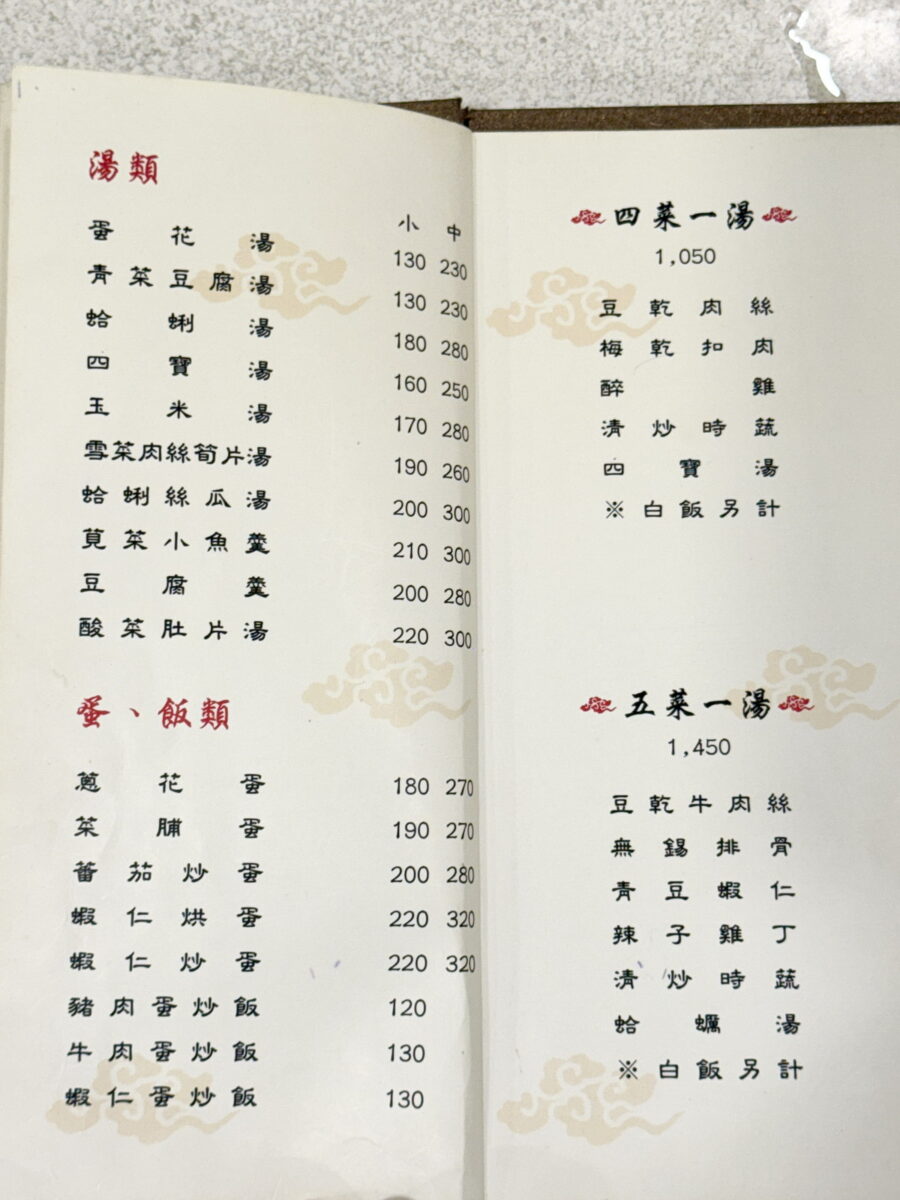 湯類
小 中
蛋花湯 130 230
青菜豆腐湯 130 230
蛤蜊湯 180 280
四寶湯 160 250
玉米湯 170 280
雪菜肉絲筍片湯 190 260
蛤蜊絲瓜湯 200 300
莧菜小魚羹 210 300
豆腐羹 200 280
酸菜肚片湯 220 300
蛋、飯類
蔥花蛋 180 270
菜脯蛋 190 270
蕃茄炒蛋 200 280
蝦仁烘蛋 220 320
蝦仁炒蛋 220 320
豬肉蛋炒飯 120
牛肉蛋炒飯 130
蝦仁蛋炒飯 130
四菜一湯
1,050
豆乾肉絲
梅乾扣肉
醉雞
清炒時蔬
四寶湯
※白飯另計
五菜一湯
1,450
豆乾牛肉絲
無錫排骨
青豆蝦仁
辣子雞丁
清炒時蔬
蛤蠣湯
※白飯另計